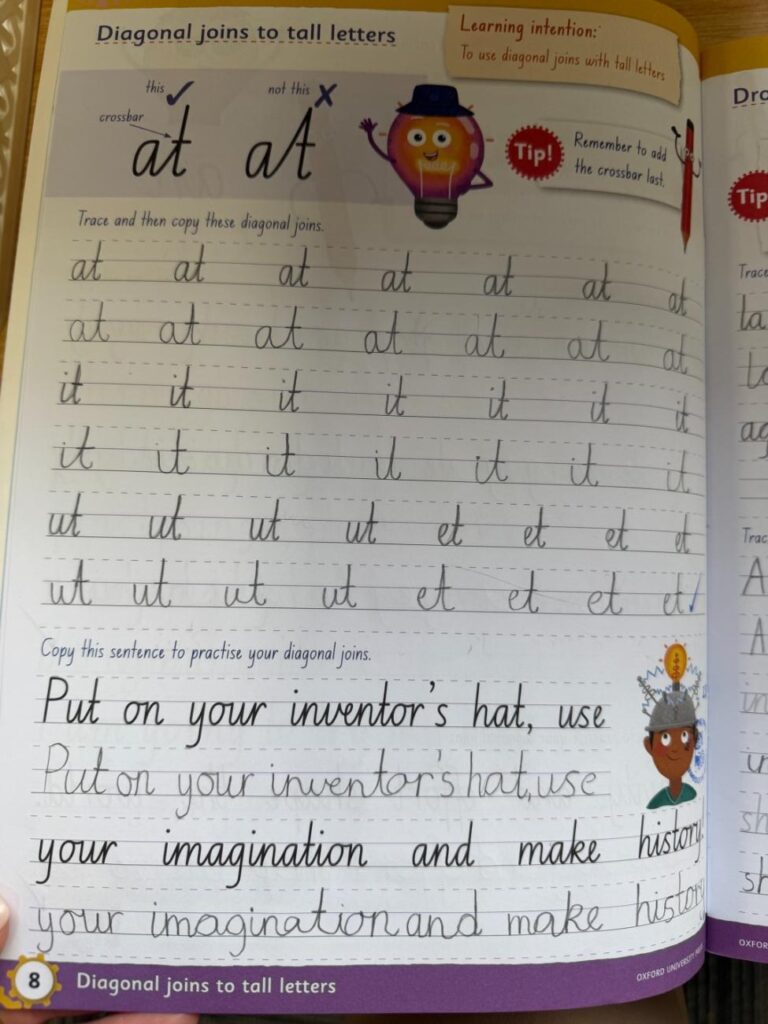 Diagonal joins to tall letters
Learning intention:
To use diagonal joins with tall letters
this
not this
crossbar
at at
Tip!
Remember to add
the crossbar last.
Trace and then copy these diagonal joins.
at at at at at at at
at at at at at at at
it it it it it it it
it it it il it it it
ut ut ut ut et et et et
ut ut ut ut et et et et
Copy this sentence to practise your diagonal joins.
Put on your inventor's hat, use
Put on your inventor's hat, use
your imagination and make history.
your imagination and make history
8 Diagonal joins to tall letters
OXFORD UNIVERSITY
Dro
Tip
Trace
ta
ag
Trac
A
A
in
sh
sh
OXFOR